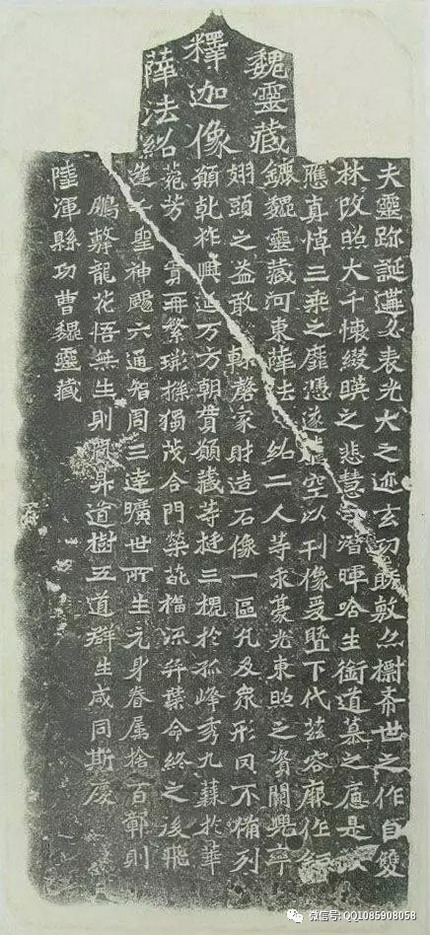 魏靈藏
釋迦像
薛法紹
夫靈跡誕遘必表光大之迹玄功既敷亦標希世之作自雙
林改照大千懷綴暎之悲慧潛暉哈生銜道慕之應是
應真悼三乘之靡憑遂空以刊像爰暨下代茲容廝作
鏕魏靈藏河東薛法紹二人等求豪光東照之資闕兜率
翅頭之益敢輒罄家財造石像一區凡及眾形罔不備列
願乾祚興延万方朝貫願藏等挺三槐於孤峰秀九蕀於華
菀芳實再繁瑹條獨茂合門榮葩福流奕葉命終之後飛
逢千聖神颺六通智周三達曠世所生元身眷屬捨百鄣則
鵬擊龍花悟無生則昇道樹五道群生咸同斯慶
陸渾縣功曹魏靈藏
微信号: QQ1085908058